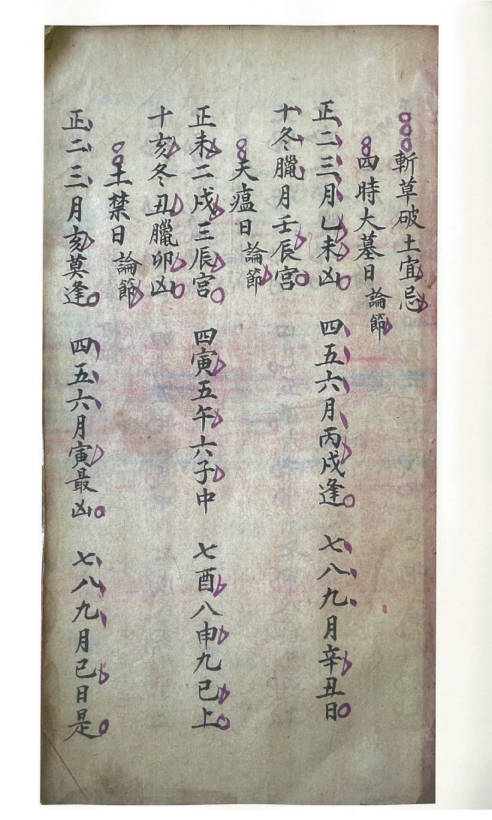 斬草破土宜忌
四時大墓日 論節
正二三月乙未凶 四五六月丙戌逢 七八九月辛丑日
十冬臘月壬辰宮
天瘟日 論節
正未二戌三辰宮 四寅五午六子中 七酉八申九巳上
十亥冬丑臘卯凶
土禁日 論節
正二三月亥莫逢 四五六月寅最凶 七八九月巳日是